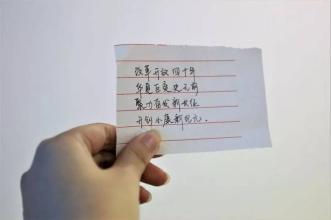 改革开放四十年
华夏巨变史无前
聚力奋战新长征
开创小康新纪元。